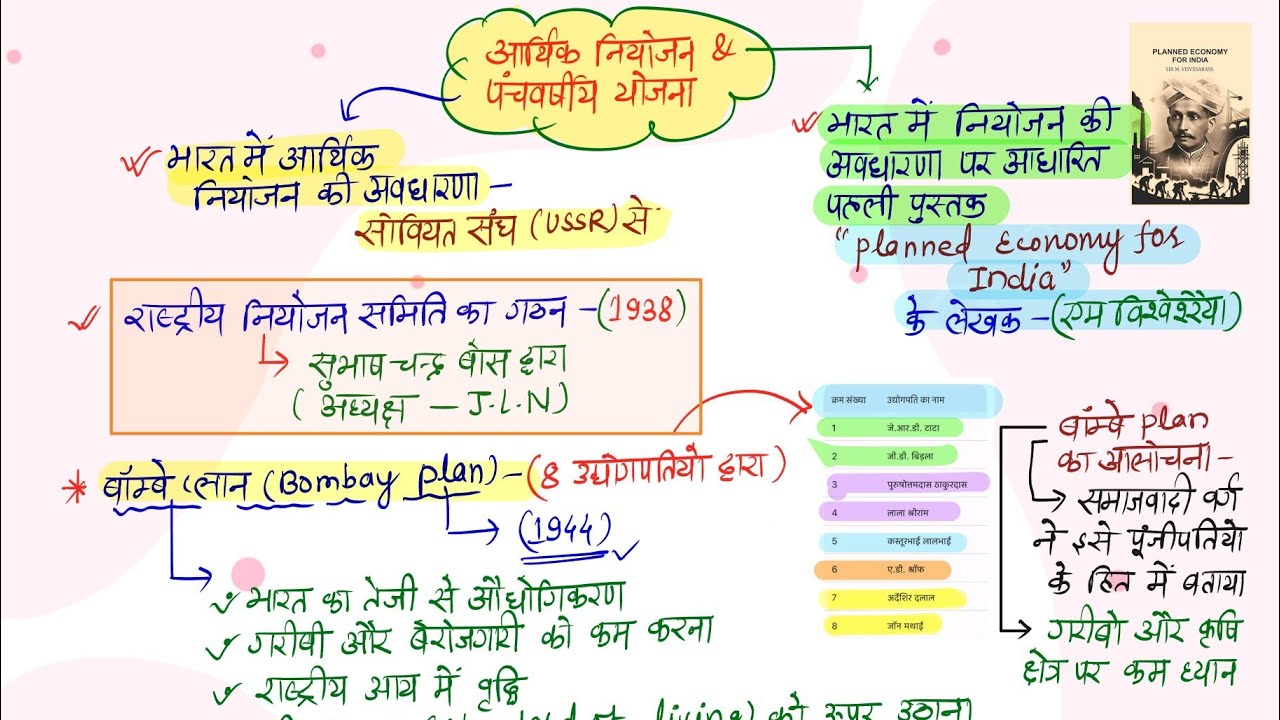 आर्थिक नियोजन &
पंचवर्षीय योजना
भारत में आर्थिक
नियोजन की अवधारणा –
सोवियत संघ (USSR) से
भारत में नियोजन की
अवधारणा पर आधारित
पहली पुस्तक
"planned Economy for
India"
के लेखक – (एम विश्वेश्रैया)
PLANNED ECONOMY
FOR INDIA
SIR M. VISVESARAYA
राष्ट्रीय नियोजन समिति का गठन – (1938)
सुभाष चन्द्र बोस द्वारा
(अध्यक्ष – J.L.N)
* बॉम्बे प्लान (Bombay plan) – (8 उद्योगपतियो द्वारा)
(1944)
भारत का तेजी से औद्योगिकरण
गरीबी और बेरोजगारी को कम करना
राष्ट्रीय आय में वृद्धि
living) को ऊपर उठाना
क्रम संख्या उद्योगपति का नाम
1 जे.आर.डी. टाटा
2 जी.डी. बिड़ला
3 पुरुषोत्तमदास ठाकुरदास
4 लाला श्रीराम
5 कस्तूरभाई लालभाई
6 ए.डी. श्रॉफ
7 अर्देशिर दलाल
8 जॉन मथाई
बॉम्बे plan
का आलोचना –
समाजवादी वर्ग
ने इसे पूंजीपतियो
के हित में बताया
गरीबो और कृषि
क्षेत्र पर कम ध्यान